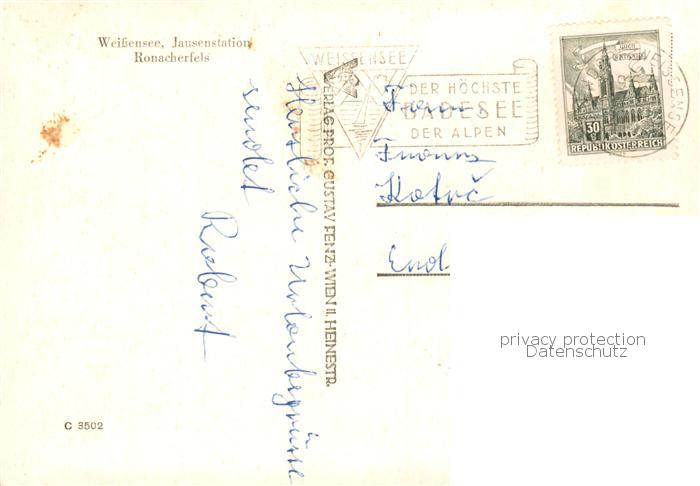 Weißensee, Jausenstation
Ronacherfels
WEISSENSEE
DER HÖCHSTE
BADESEE
DER ALPEN
WIEN
RATHAUS
30
REPUBLIK ÖSTERREICH
Herzliche Urlaubsgrüsse
sendet
Robert
VERLAG PROF. GUSTAV FENZ-WIEN II. HEINESTR.
Fam.
Franz
privacy protection
Datenschutz
C 3502